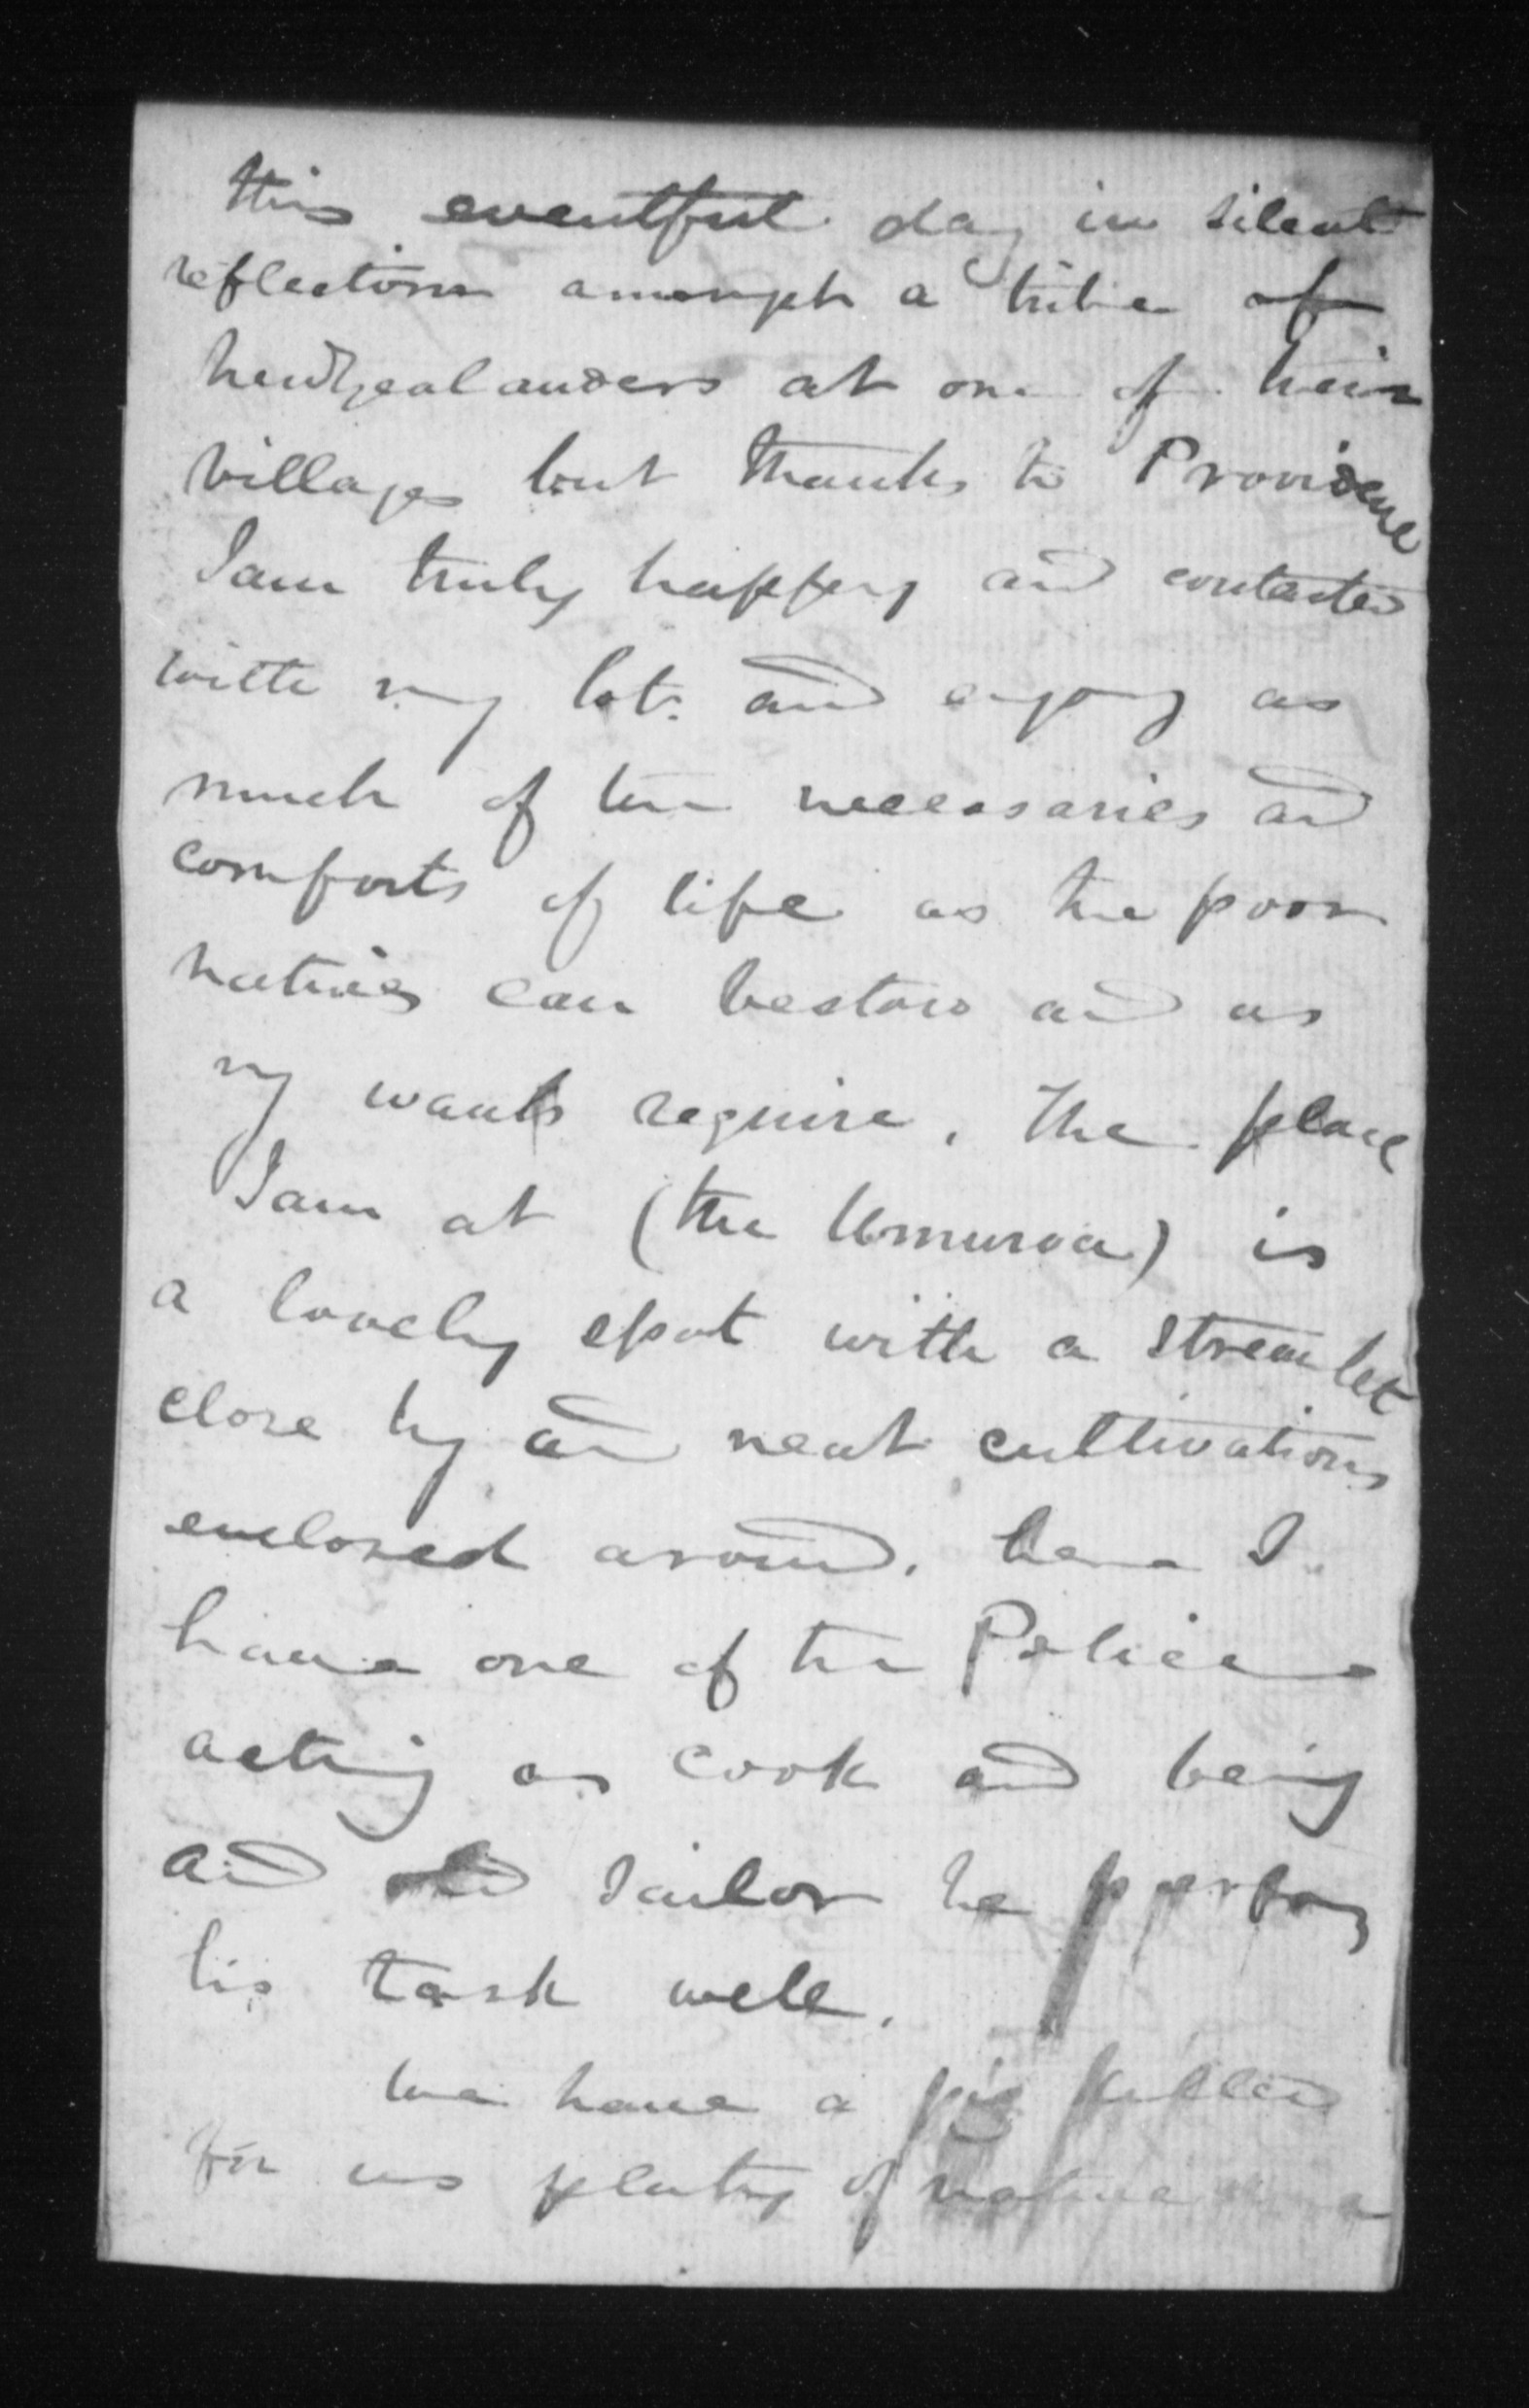 this eventful day in silent
reflections amongst a tribe of
newzealanders at one of their
villages but thanks to Providence
I am truly happy and contented
with my lot. and enjoy as
much of the necessaries and
comforts of life as the poor
natives can bestow and as
my wants require. The place
I am at (the Umuroa) is
a lovely spot with a streamlet
close by and neat cultivations
enclosed around. here I
have one of the Police
acting as cook and being
and old Sailor he
his task well.
We have a pig killed
for us plenty of native